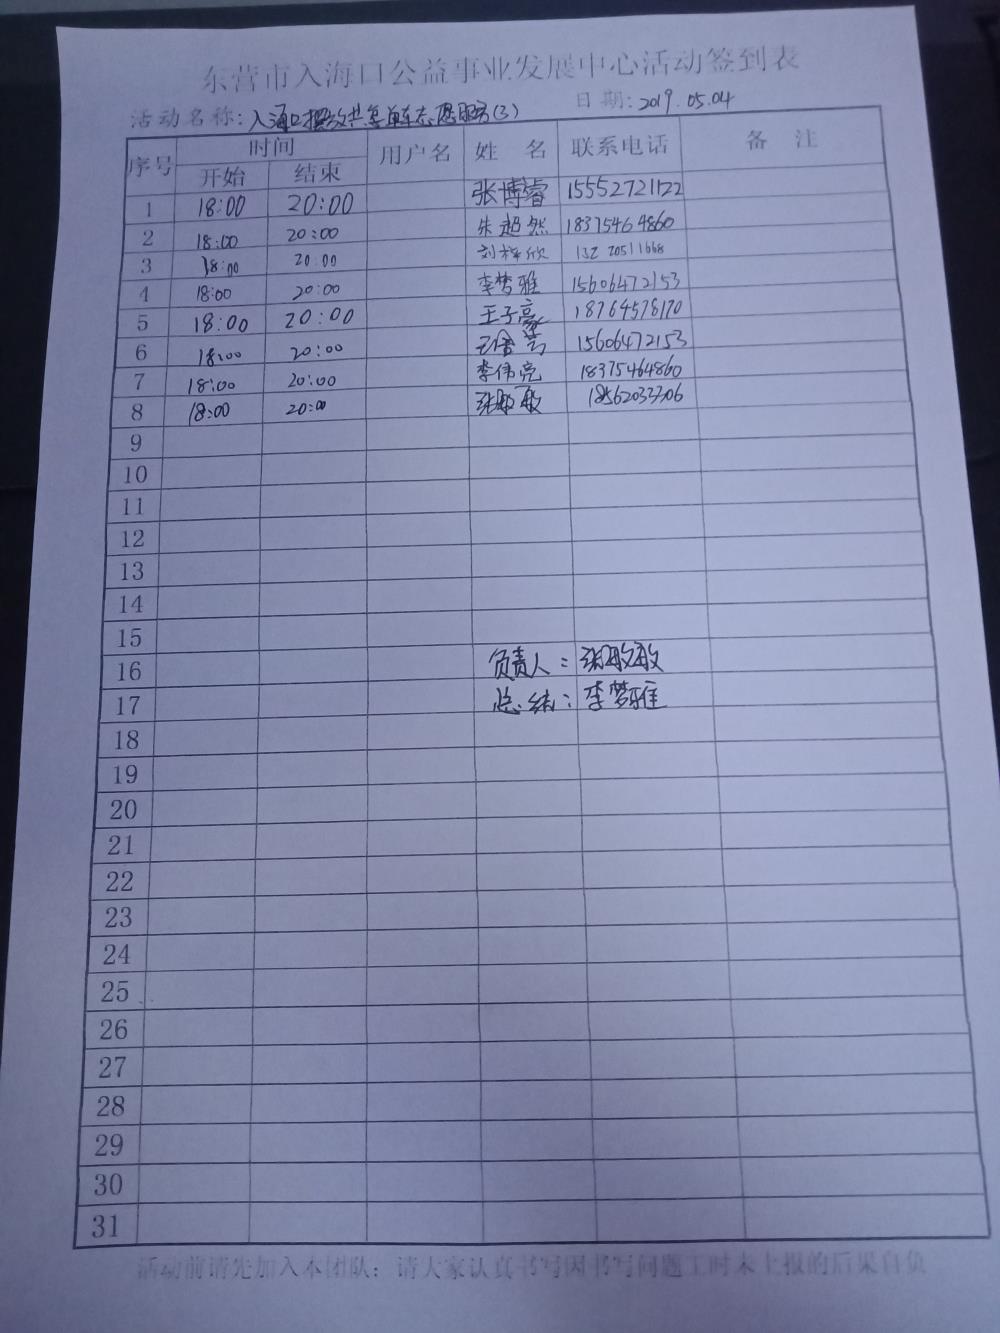 东营市入海口公益事业发展中心活动签到表
活动名称: 入海口摆放共享单车志愿服务(3) 日期: 2019.05.04
序号 时间 用户名 姓 名 联系电话 备 注
开始 结束
1 18:00 20:00 张博睿 15552721122
2 18:00 20:00 朱超然 18375464860
3 18:00 20:00 刘梓欣 132 20511668
4 18:00 20:00 李梦雅 15606472153
5 18:00 20:00 王子豪 18764578170
6 18:00 20:00 15606472153
7 18:00 20:00 李伟亮 18375464860
8 18:00 20:00 张敏敏 18562033706
9
10
11
12
13
14
15
16 负责人: 张敏敏
17 总结: 李梦雅
18
19
20
21
22
23
24
25
26
27
28
29
30
31
活动前请先加入本团队; 请大家认真书写因书写问题工时未上报的后果自负